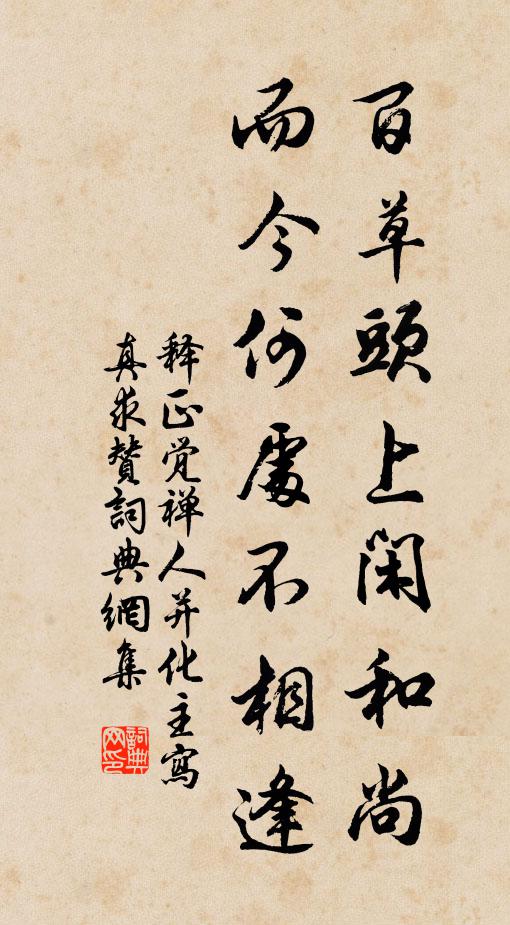 百草頭上閑和尚
而今何處不相逢
释正觉禅人并化主寫
真求贊詞典網集
詞典网印